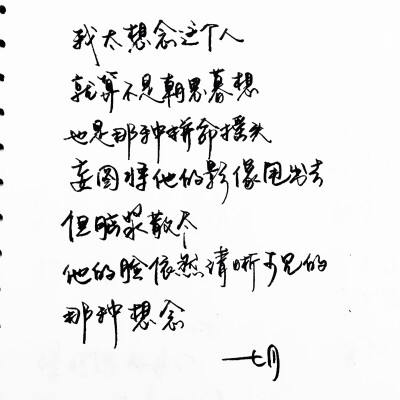 我太想念这个人
就算不是朝思暮想
也是那种拼命摇头
妄图将他的影像甩出去
但脑浆散尽
他的脸依然清晰可见的
那种想念
—七月